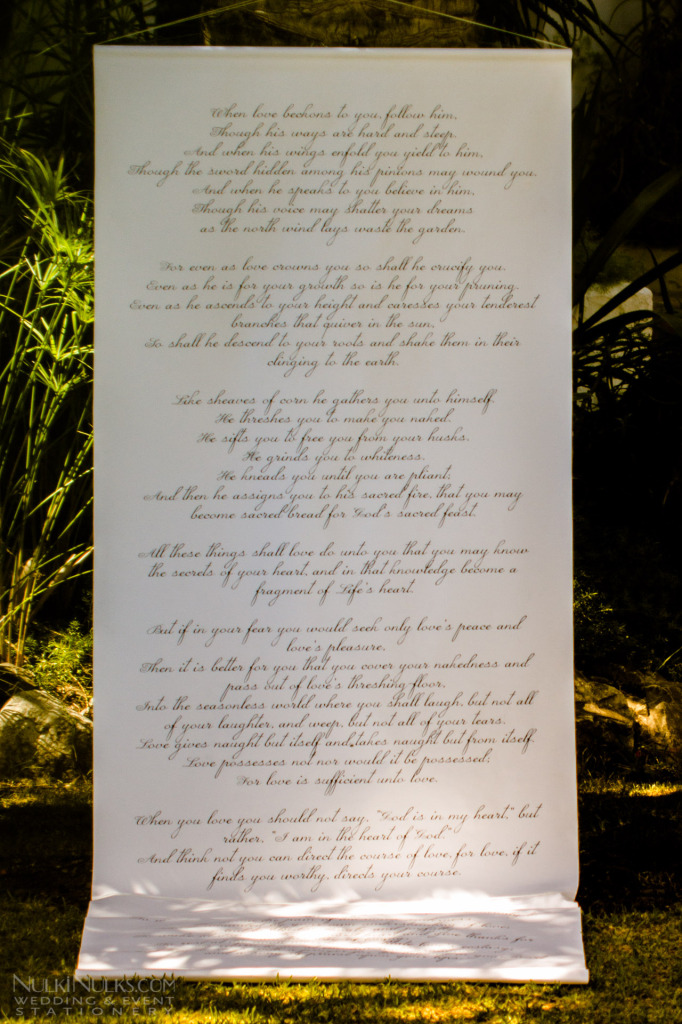 When love beckons to you, follow him,
Though his ways are hard and steep.
And when his wings enfold you yield to him,
Though the sword hidden among his pinions may wound you.
And when he speaks to you believe in him,
Though his voice may shatter your dreams
as the north wind lays waste the garden.
For even as love crowns you so shall he crucify you.
Even as he is for your growth so is he for your pruning.
Even as he ascends to your height and caresses your tenderest
branches that quiver in the sun,
So shall he descend to your roots and shake them in their
clinging to the earth.
Like sheaves of corn he gathers you unto himself.
He threshes you to make you naked.
He sifts you to free you from your husks.
He grinds you to whiteness.
He kneads you until you are pliant;
And then he assigns you to his sacred fire, that you may
become sacred bread for God's sacred feast.
All these things shall love do unto you that you may know
the secrets of your heart, and in that knowledge become a
fragment of Life's heart.
But if in your fear you would seek only love's peace and
love's pleasure,
Then it is better for you that you cover your nakedness and
pass out of love's threshing-floor,
Into the seasonless world where you shall laugh, but not all
of your laughter, and weep, but not all of your tears.
Love gives naught but itself and takes naught but from itself.
Love possesses not nor would it be possessed;
For love is sufficient unto love.
When you love you should not say, "God is in my heart," but
rather, "I am in the heart of God."
And think not you can direct the course of love, for love, if it
finds you worthy, directs your course.
NulkiNulks.com
Wedding & Event
Stationery